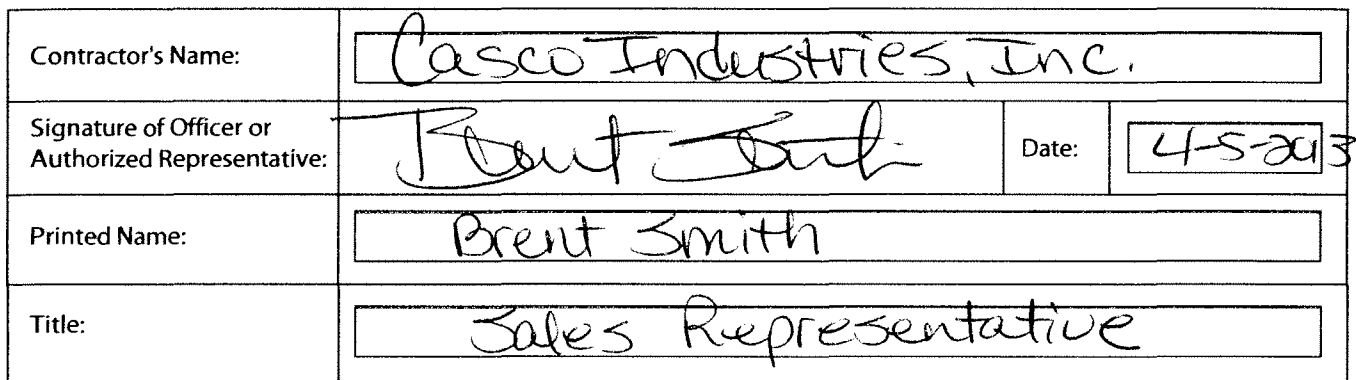 Contractor's Name: Casco Industries, Inc.
Signature of Officer or
Authorized Representative: Brent Smith Date: 4-5-2013
Printed Name: Brent Smith
Title: Sales Representative